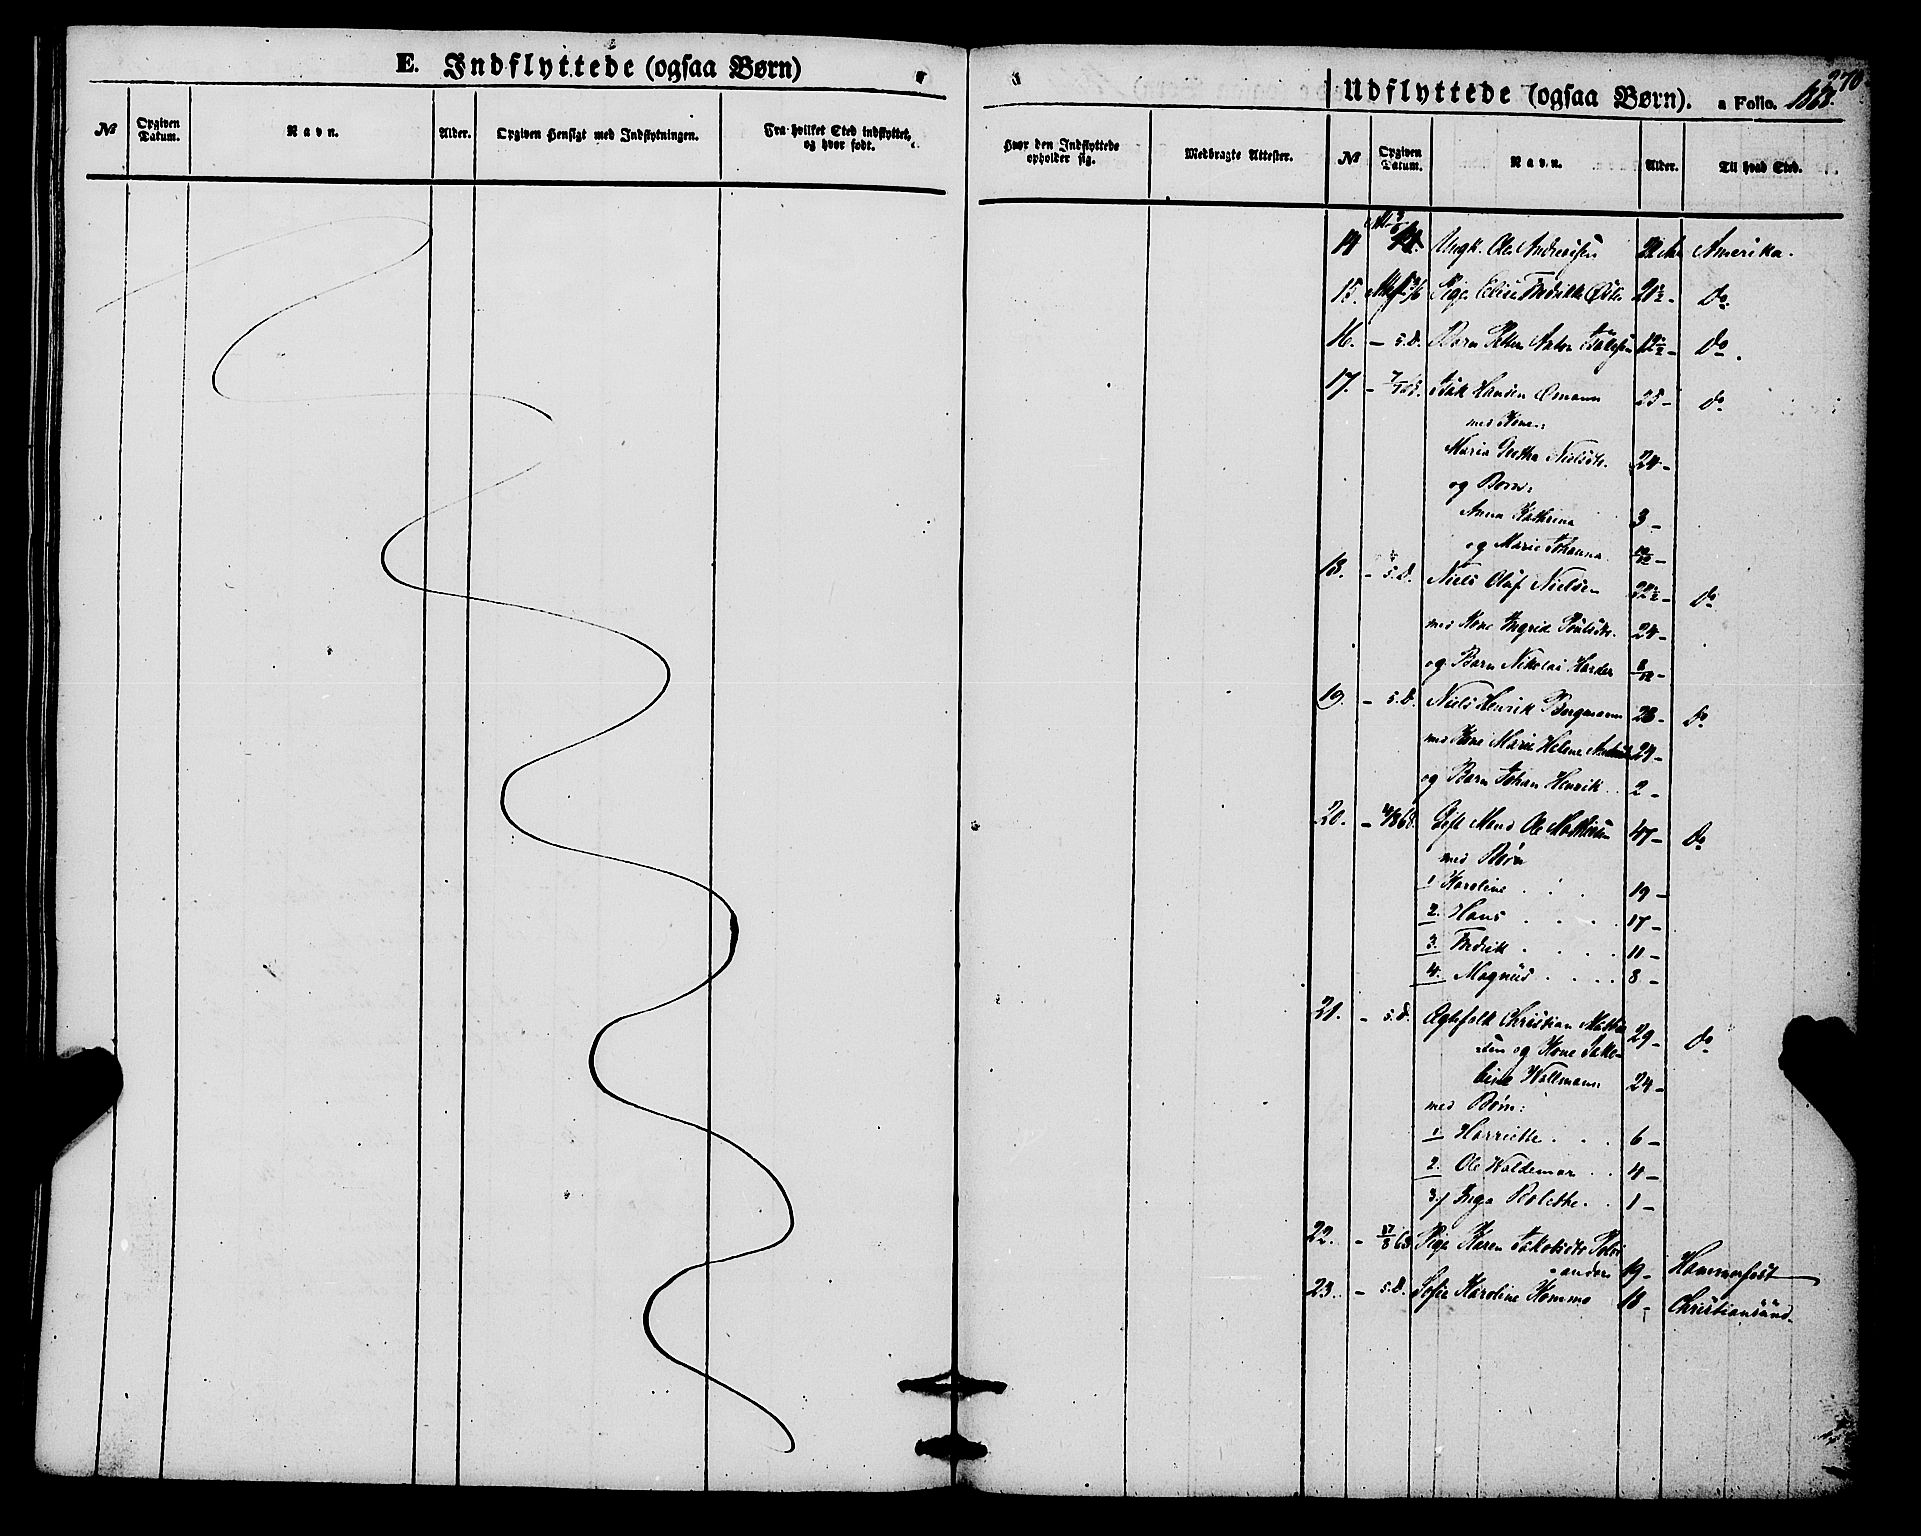 E. Indflyttede (ogsaa Børn)
№ Opgiven Datum. Navn. Alder. Opgiven Hensigt med Indflytningen. Fra hvilket Sted indflyttet, og hvor født.
Udflyttede (ogsaa Børn). a Folio. 270
Hvor den Indflyttede opholder sig. Medbragte Attester. № Opgiven Datum. Navn. Alder. Til hvad Sted.
14 Ungk. Ole Andreassen Amerika.
15. Pige Elise Fredrikke 21½ - Do.
16. - s.D. Barn Petter Anton 12½ - Do.
17. - Isak Hansen Ømann 25 - Do
med Kone:
Maria Grethe Nielsdtr. 24 -
og Børn:
Anna Kathrina 3 -
og Marie Johanna 10/12 -
18. - s.D. Niels Oluf Nielsen 22½ - Do
med Kone Ingrid Poulsdtr. 24 -
og Barn Nikolai Harder 8/12 -
19. - s.D. Niels Henrik Bergmann 28 - Do
med Kone Marie Helene 24 -
og Barn Johan Henrik .. 2 -
20. - 4/8 68. Gift Mand Ole Mathisen 47 - Do
med Børn
1 Karoline . . . 19 -
2. Hans . . . . 17 -
3. Fredrik . . . . 11 -
4. Magnus . . . . 8 -
21. - s.D. Ægtefolk Christian Mathi- 29 - Do
sen og Kone Jako-
bine Wallmann 24 -
med Børn:
1. Harriette . . . 6 -
2. Ole Waldemar . . 4 -
3. Inga Bolethe . . 1 -
22. - 17/8 68 Pige Karen Jakobsdtr
19 - Hammerfest
23. - s.D. Sofie Karoline Hammo 18 - Christiansund.